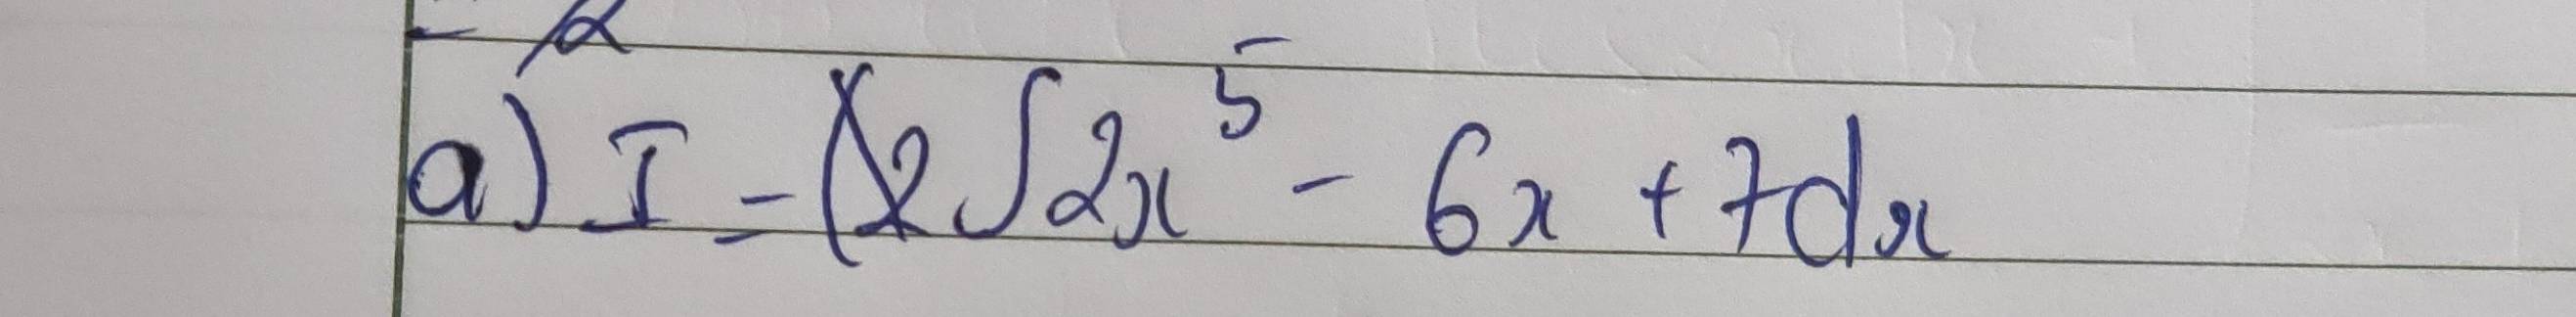 a) I = ∫2x⁵ - 6x + 7dx